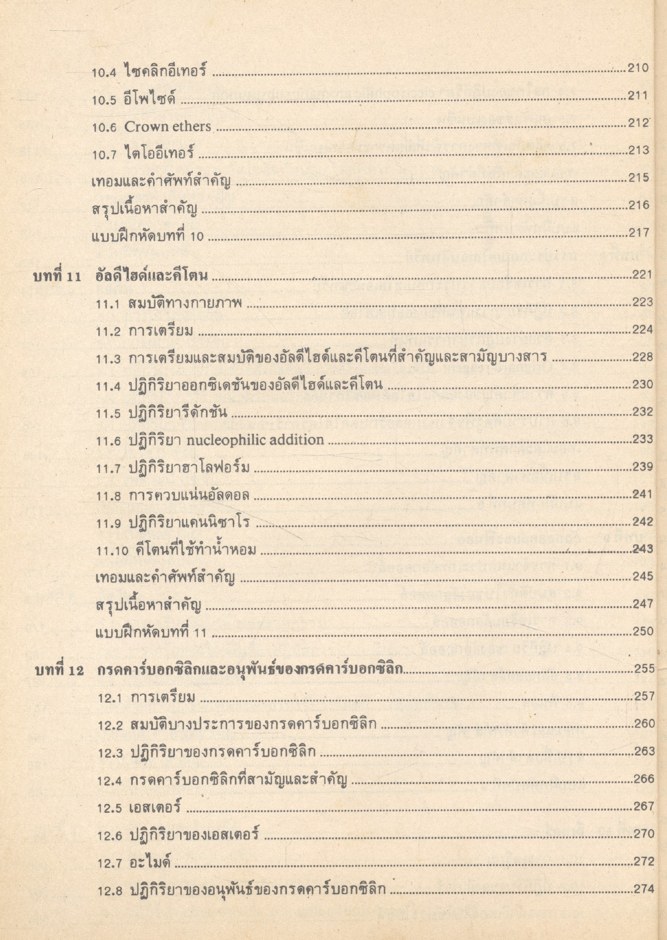 10.4 ไซคลิกอีเทอร์ ........ 210
10.5 อีโพไซด์ ........ 211
10.6 Crown ethers ........ 212
10.7 ไตโออีเทอร์ ........ 213
เทอมและคำศัพท์สำคัญ ........ 215
สรุปเนื้อหาสำคัญ ........ 216
แบบฝึกหัดบทที่ 10 ........ 217
บทที่ 11 อัลดีไฮด์และคีโตน ........ 221
11.1 สมบัติทางกายภาพ ........ 223
11.2 การเตรียม ........ 224
11.3 การเตรียมและสมบัติของอัลดีไฮด์และคีโตนที่สำคัญและสามัญบางสาร ........ 228
11.4 ปฏิกิริยาออกซิเดชันของอัลดีไฮด์และคีโตน ........ 230
11.5 ปฏิกิริยารีดักชัน ........ 232
11.6 ปฏิกิริยา nucleophilic addition ........ 233
11.7 ปฏิกิริยาฮาโลฟอร์ม ........ 239
11.8 การควบแน่นอัลดอล ........ 241
11.9 ปฏิกิริยาแคนนิซาโร ........ 242
11.10 คีโตนที่ใช้ทำน้ำหอม ........ 243
เทอมและคำศัพท์สำคัญ ........ 245
สรุปเนื้อหาสำคัญ ........ 247
แบบฝึกหัดบทที่ 11 ........ 250
บทที่ 12 กรดคาร์บอกซิลิกและอนุพันธ์ของกรดคาร์บอกซิลิก ........ 255
12.1 การเตรียม ........ 257
12.2 สมบัติบางประการของกรดคาร์บอกซิลิก ........ 260
12.3 ปฏิกิริยาของกรดคาร์บอกซิลิก ........ 263
12.4 กรดคาร์บอกซิลิกที่สามัญและสำคัญ ........ 266
12.5 เอสเตอร์ ........ 267
12.6 ปฏิกิริยาของเอสเตอร์ ........ 270
12.7 อะไมด์ ........ 272
12.8 ปฏิกิริยาของอนุพันธ์ของกรดคาร์บอกซิลิก ........ 274